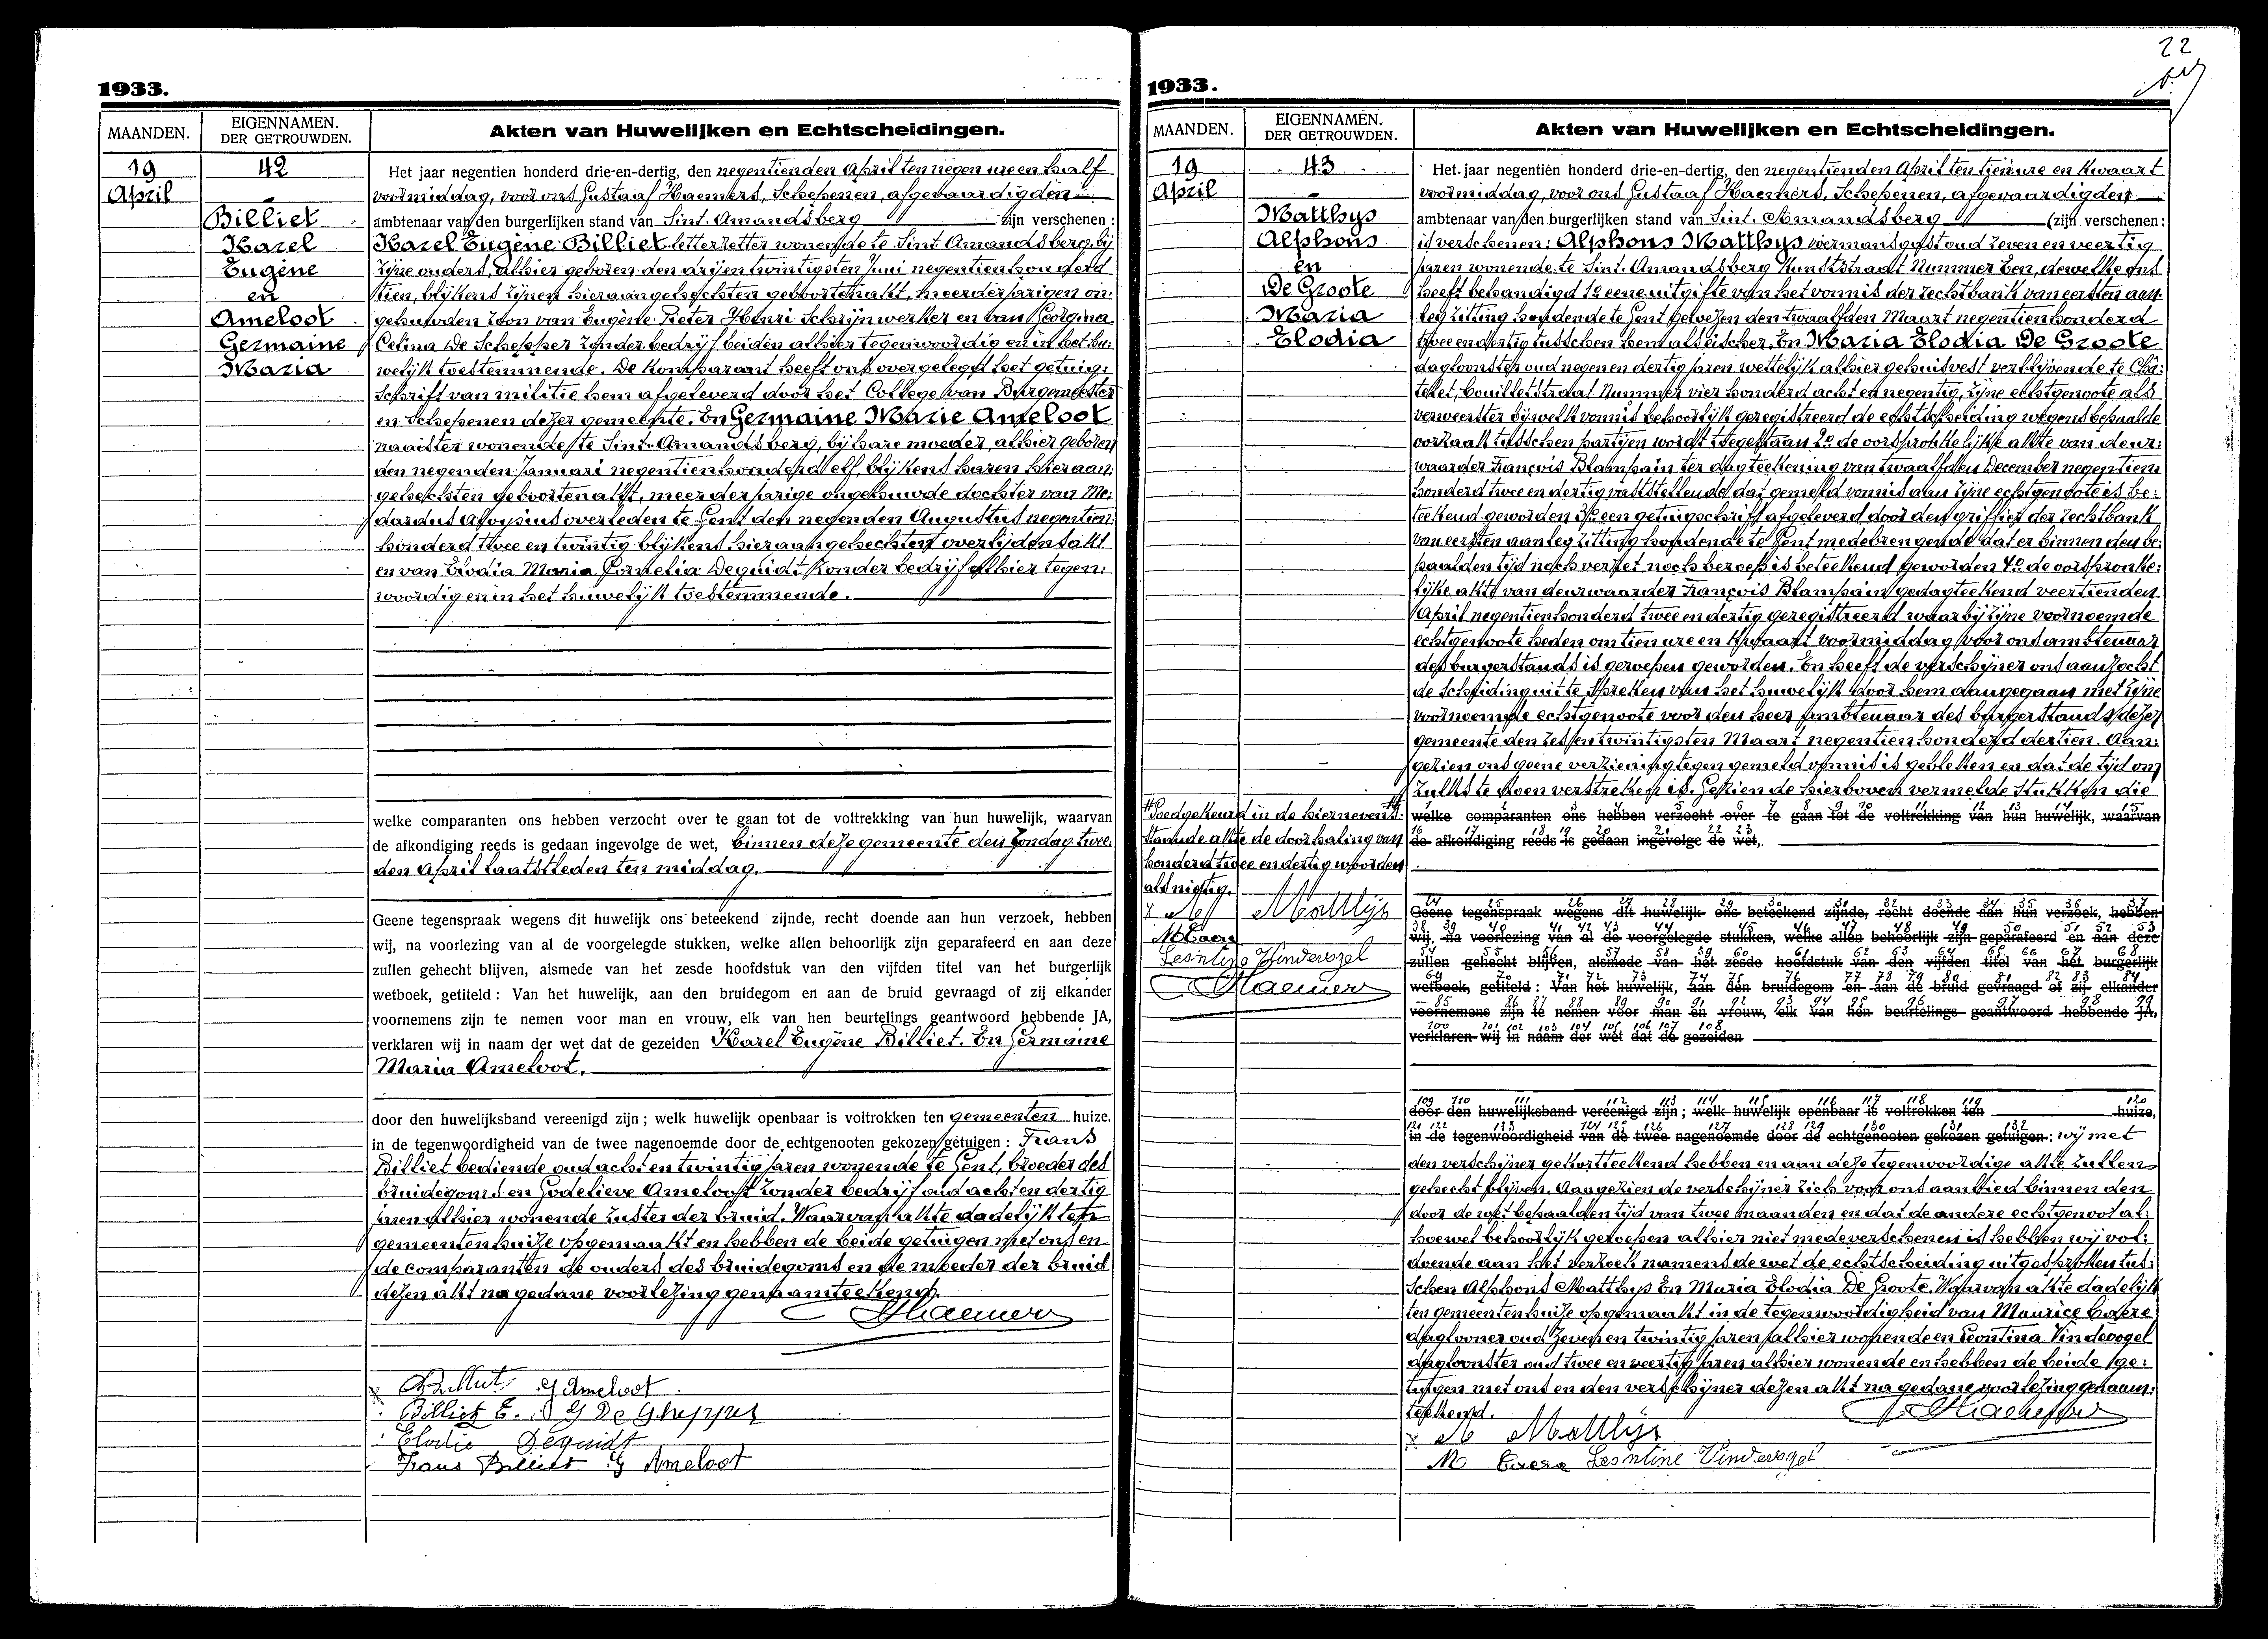 1933.
MAANDEN.
EIGENNAMEN.
DER GETROUWDEN.
Akten van Huwelijken en Echtscheidingen.
19
April
42
Billiet
Karel
Eugène
en
Ameloot
Germaine
Maria
Het jaar negentien honderd drie-en-dertig, den negentienden April ten negen ure en half
voormiddag, voor ons Gustaaf Haemers, Schepenen, afgevaardigden
ambtenaar van den burgerlijken stand van Sint-Amandsberg zijn verschenen :
Karel Eugène Billiet letterzetter wonende te Sint-Amandsberg bij
zijne ouders, alhier geboren den drij en twintigsten Juni negentien honderd
tien, blijkens zijnen hieraangehechten geboorteakt, meerderjarigen on-
gehuwden zoon van Eugène Pieter Henri Schrijnwerker en van Georgina
Celina De Schepper zonder bedrijf beiden alhier tegenwoordig en in het hu-
welijk toestemmende. De komparant heeft ons overgelegd het getuig-
schrift van militie hem afgeleverd door het College van Burgemeester
en Schepenen dezer gemeente. En Germaine Marie Ameloot
naaister wonende te Sint-Amandsberg, bij hare moeder, alhier geboren
den negenden Januari negentien honderd elf, blijkens haren hieraan-
gehechten geboortenakt, meerderjarige ongehuwde dochter van Me-
dardus Aloysius overleden te Gent den negenden Augustus negentien
honderd twee en twintig blijkens hieraangehechten overlijdensakt
en van Elodia Maria Cornelia Dequidt zonder bedrijf alhier tegen-
woordig en in het huwelijk toestemmende.
welke comparanten ons hebben verzocht over te gaan tot de voltrekking van hun huwelijk, waarvan
de afkondiging reeds is gedaan ingevolge de wet, binnen deze gemeente den Zondag twee-
den April laatstleden ten middag.
Geene tegenspraak wegens dit huwelijk ons beteekend zijnde, recht doende aan hun verzoek, hebben
wij, na voorlezing van al de voorgelegde stukken, welke allen behoorlijk zijn geparafeerd en aan deze
zullen gehecht blijven, alsmede van het zesde hoofdstuk van den vijfden titel van het burgerlijk
wetboek, getiteld : Van het huwelijk, aan den bruidegom en aan de bruid gevraagd of zij elkander
voornemens zijn te nemen voor man en vrouw, elk van hen beurtelings geantwoord hebbende JA,
verklaren wij in naam der wet dat de gezeiden Karel Eugène Billiet. En Germaine
Maria Ameloot.
door den huwelijksband vereenigd zijn ; welk huwelijk openbaar is voltrokken ten gemeenten huize,
in de tegenwoordigheid van de twee nagenoemde door de echtgenooten gekozen getuigen : Frans
Billiet bediende oud acht en twintig jaren wonende te Gent, broeder des
bruidegoms en Godelieve Ameloot zonder bedrijf oud acht en dertig
jaren alhier wonende zuster der bruid. Waarvan akte dadelijk ten
gemeentenhuize opgemaakt en hebben de beide getuigen met ons en
de comparanten de ouders des bruidegoms en de moeder der bruid
dezen akt na gedane voorlezing genaamteekend.
Haemers
G Ameloot
Billiet E. G De Schepper
Elodie Dequidt
Frans Billiet G Ameloot
22
1933.
MAANDEN.
EIGENNAMEN.
DER GETROUWDEN.
Akten van Huwelijken en Echtscheidingen.
19
April
43
Matthys
Alphons
en
De Groote
Maria
Elodia
Het jaar negentien honderd drie-en-dertig, den negentienden April ten tien ure en kwaart
voormiddag, voor ons Gustaaf Haemers, Schepenen, afgevaardigden
ambtenaar van den burgerlijken stand van Sint-Amandsberg (zijn verschenen :
is verschenen : Alphons Matthys voermansgast oud zeven en veertig
jaren wonende te Sint-Amandsberg Kunststraat Nummer Een, dewelke ons
heeft behandigd 1° eene uitgifte van het vonnis der rechtbank van eersten aan-
leg zitting houdende te Gent gewezen den twaalfden Maart negentien honderd
twee en dertig tusschen hem als eischer, En Maria Elodia De Groote
dagloonster oud negen en dertig jaren wettelijk alhier gehuisvest verblijvende te Châ-
telet, Couilletstraat Nummer vier honderd acht en negentig, zijne echtgenoote als
verweerster bij welk vonnis behoorlijk geregistreerd de echtscheiding wegens bepaalde
oorzaak tusschen partijen wordt toegestaan 2° de oorspronkelijke akte van deur-
waarder François Blampain ter dagteekening van twaalfden December negentien
honderd twee en dertig vaststellende dat gemeld vonnis aan zijne echtgenoote is be-
teekend geworden 3° een getuigschrift afgeleverd door den griffier der rechtbank
van eersten aanleg zitting houdende te Gent medebrengende dat er binnen den be-
paalden tijd noch verzet noch beroep is beteekend geworden 4° de oorspronke-
lijke akte van deurwaarder François Blampain gedagteekend veertienden
April negentien honderd twee en dertig geregistreerd waarbij zijne voornoemde
echtgenoote heden om tien ure en kwaart voormiddag voor ons ambtenaar
des burgerstands is geroepen geworden. En heeft de verschijner ons aanzocht
de Scheiding uit te spreken van het huwelijk door hem aangegaan met zijne
voornoemde echtgenoote voor den heer ambtenaar des burgerstands dezer
gemeente den zes en twintigsten Maart negentien honderd dertien. Aan-
gezien ons geene verziening tegen gemeld vonnis is gebleken en dat de tijd om
zulks te doen verstreken is. Gezien de hierboven vermelde stukken die
welke comparanten ons hebben verzocht over te gaan tot de voltrekking van hun huwelijk, waarvan
de afkondiging reeds is gedaan ingevolge de wet,
Goedgekeurd in de hiernevens-
staande akte de doorhaling van
honderd twee en dertig woorden
als nietig.
A Matthijs
M Caere
Leontine Vindevogel
Haemers
Geene tegenspraak wegens dit huwelijk ons beteekend zijnde, recht doende aan hun verzoek, hebben
wij, na voorlezing van al de voorgelegde stukken, welke allen behoorlijk zijn geparafeerd en aan deze
zullen gehecht blijven, alsmede van het zesde hoofdstuk van den vijfden titel van het burgerlijk
wetboek, getiteld : Van het huwelijk, aan den bruidegom en aan de bruid gevraagd of zij elkander
voornemens zijn te nemen voor man en vrouw, elk van hen beurtelings geantwoord hebbende JA,
verklaren wij in naam der wet dat de gezeiden
door den huwelijksband vereenigd zijn ; welk huwelijk openbaar is voltrokken ten huize,
in de tegenwoordigheid van de twee nagenoemde door de echtgenooten gekozen getuigen : wij met
den verschijner gekortteekend hebben en aan deze tegenwoordige akte zullen
gehecht blijven. Aangezien de verschijner zich voor ons aanbied binnen den
door de wet bepaalden tijd van twee maanden en dat de andere echtgenoot al-
hoewel behoorlijk geroepen alhier niet medeverschenen is hebben wij vol-
doende aan het verzoek namens de wet de echtscheiding uitgesproken tus-
schen Alphons Matthys En Maria Elodia De Groote. Waarvan akte dadelijk
ten gemeentenhuize opgemaakt in de tegenwoordigheid van Maurice Caere
daglooner oud zeven en twintig jaren alhier wonende en Leontina Vindevogel
dagloonster oud twee en veertig jaren alhier wonende en hebben de beide ge-
tuigen met ons en den verschijner dezen akt na gedane voorlezing genaam-
teekend.
Haemers
A Matthijs
M Caere Leontine Vindevogel